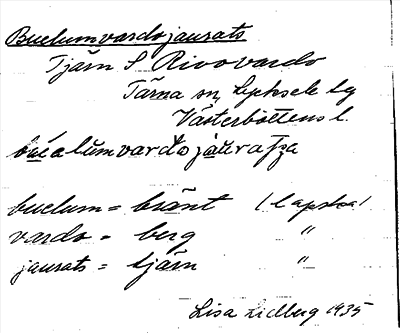 Buelumvardojaurats
Tjärn S Rivovardo
Tärna sn, Lycksele lg
Västerbottens l.
búalũmvardojäuratsa
buelum = bränt (lapska)
vardo = berg "
jaurats = tjärn "
Lisa Lidberg 1935